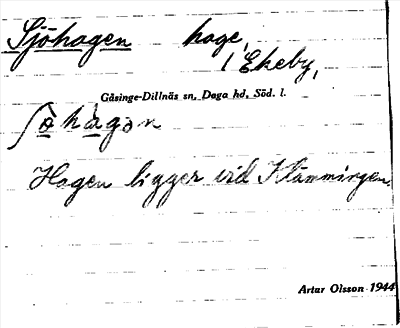 Sjöhagen hage,
i Ekeby,
Gåsinge-Dillnäs sn, Daga hd, Söd. l.
ʃò̱hàgən
Hagen ligger vid Klämmingen.
Artur Olsson 1944